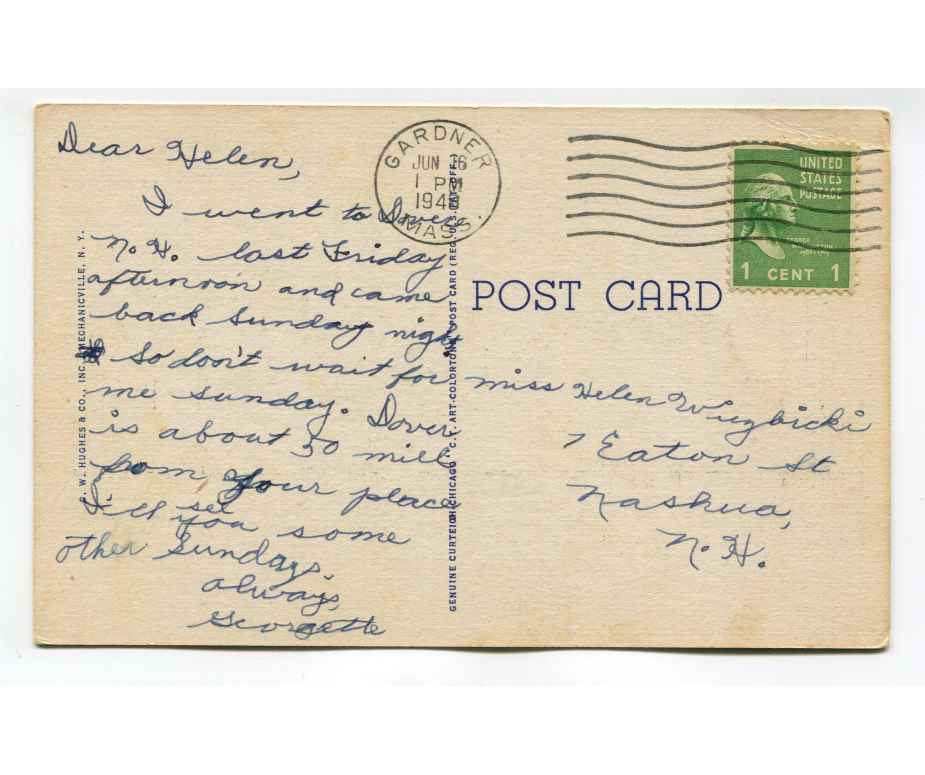 Dear Helen,
I went to Dover
N. H. last Friday
afternoon and came
back Sunday night
So don't wait for
me Sunday. Dover
is about 50 mill
from your place
I'll see you some
other Sundays.
always,
Georgette
GARDNER
JUN 16
1 PM
MASS.
UNITED
STATES
POSTAGE
1 CENT 1
POST CARD
miss Helen Wiezbicki
7 Eaton St
Nashua,
N. H.
W. HUGHES & CO., INC., MECHANICVILLE, N. Y.
GENUINE CURTEICH-CHICAGO "C.T. ART-COLORTONE" POST CARD (REG. U.S. PAT. OFF.)